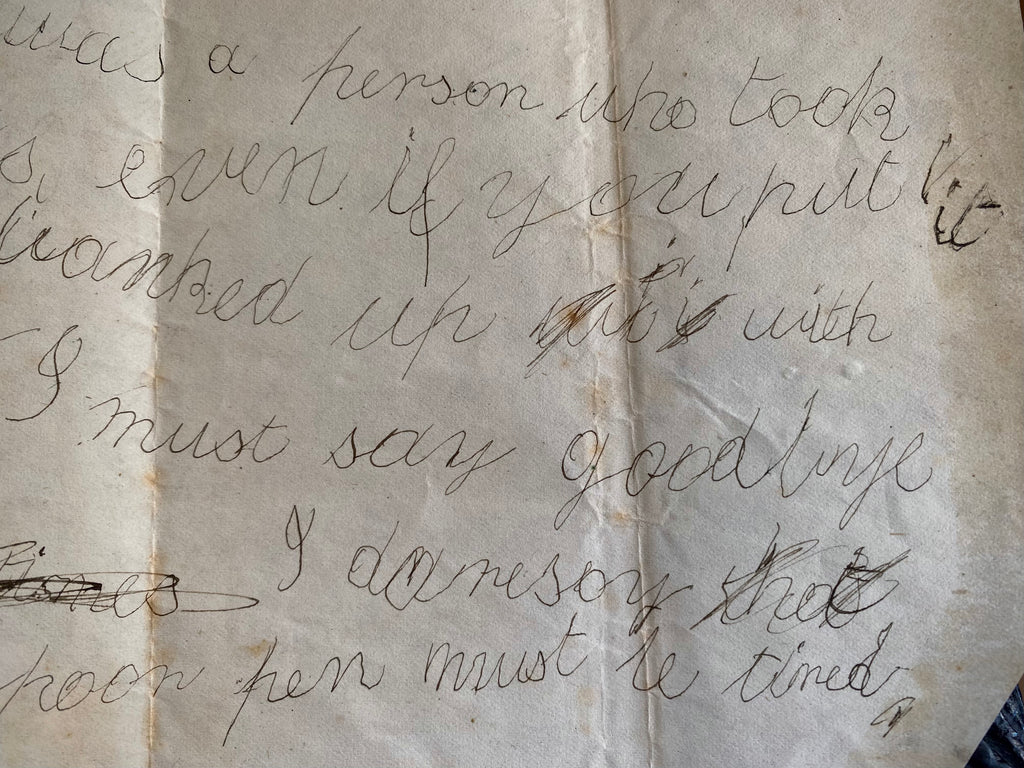 was a person who took
s, even if you put it
cranked up with
I must say goodbye
I daresay that
poor pen must be tired